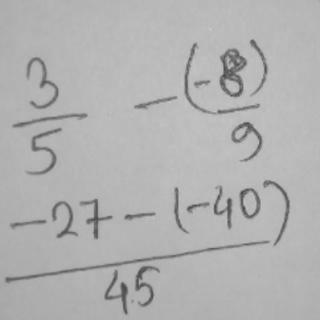 3/5 - (-8)/9
-27-(-40)/45